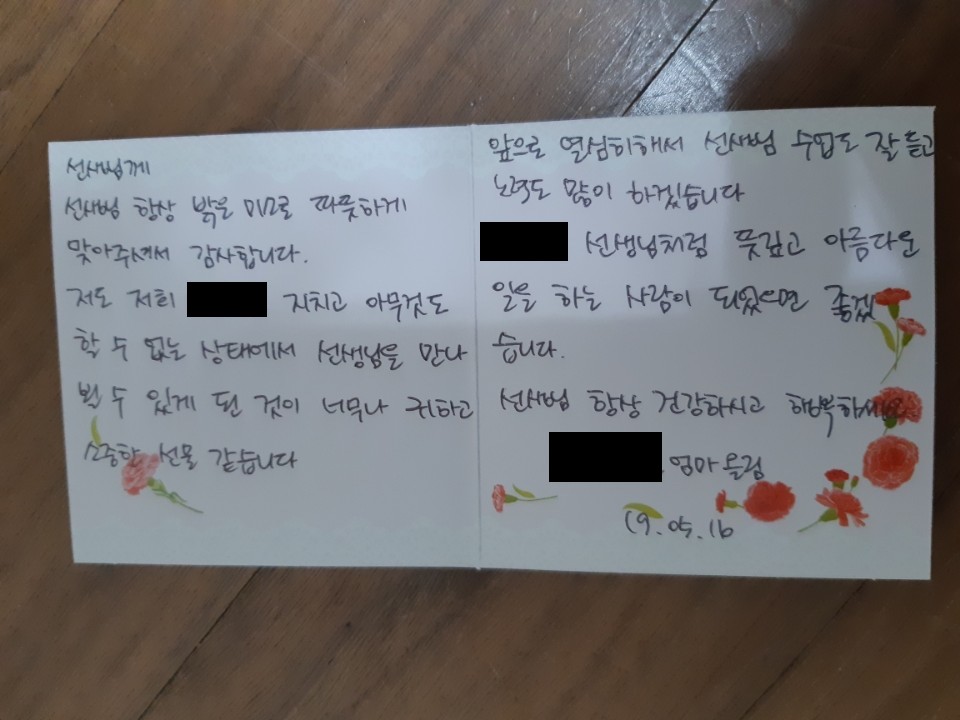 선생님께
선생님 항상 밝은 미소로 따뜻하게
맞아주셔서 감사합니다.
저도 저희 지치고 아무것도
할 수 없는 상태에서 선생님을 만나
뵐 수 있게 된 것이 너무나 귀하고
소중한 선물 같습니다
앞으로 열심히해서 선생님 수업도 잘 듣고
노력도 많이 하겠습니다
선생님처럼 뜻깊고 아름다운
일을 하는 사람이 되었으면 좋겠
습니다.
선생님 항상 건강하시고 행복하세요
엄마올림
19.05.16